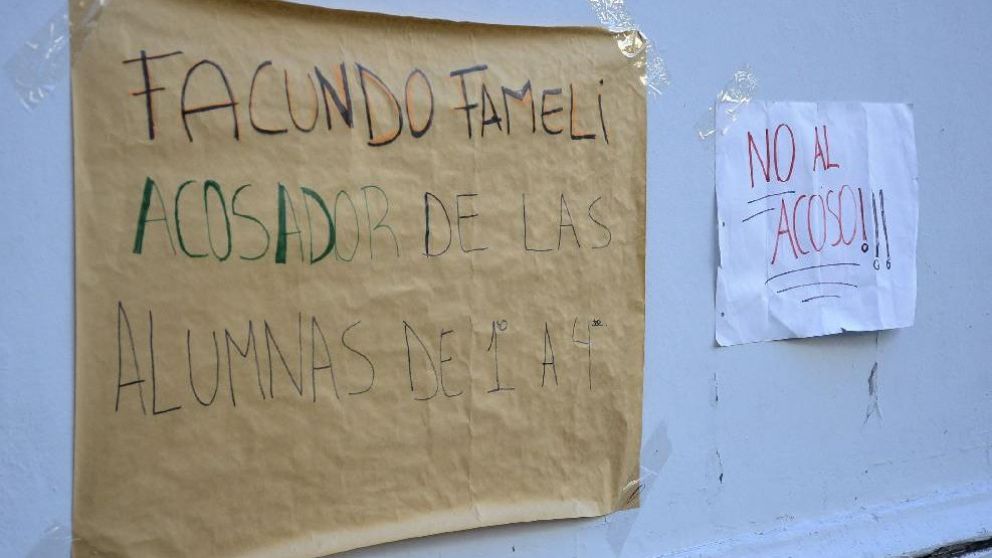 FACUNDO FAMELi
ACOSADOR DE LAS
ALUMNAS DE 1º A 4to.
NO AL
ACOSO!!!